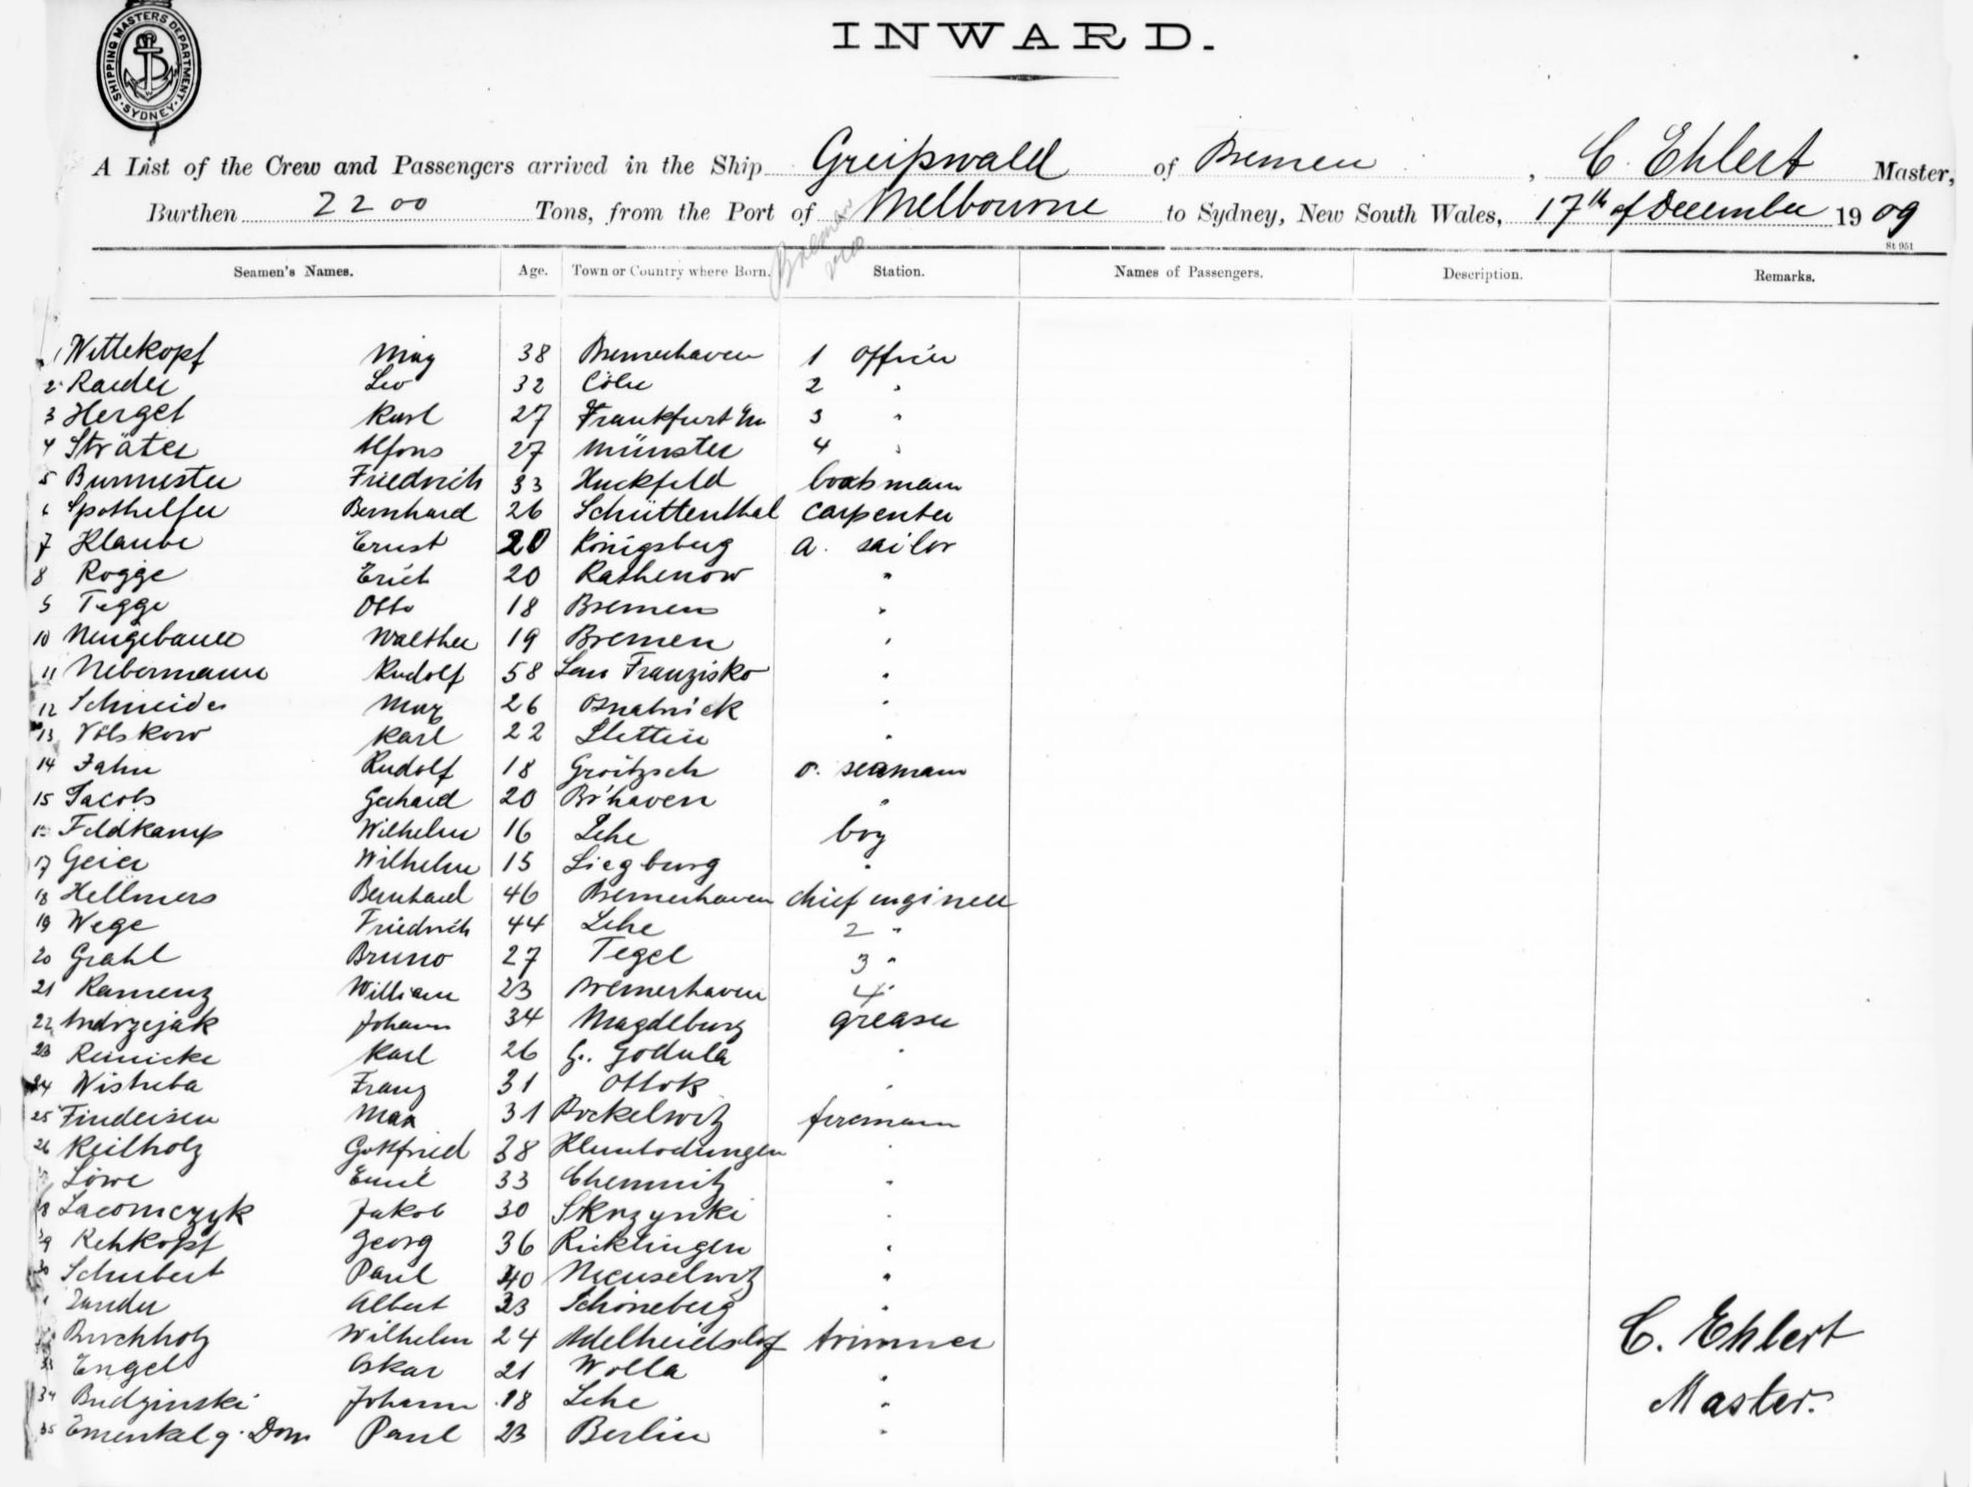 SHIPPING MASTERS DEPARTMENT · SYDNEY ·
INWARD.
A List of the Crew and Passengers arrived in the Ship Greifswald of Bremen, C. Ehlert Master,
Burthen 2200 Tons, from the Port of Melbourne to Sydney, New South Wales, 17th of December 1909
St 951
Seamen's Names. Age. Town or Country where Born. Station. Names of Passengers. Description. Remarks.
1 Wittekopf Max 38 Bremerhaven 1 officer
2 Raeder Leo 32 Cöln 2 "
3 Herget Karl 27 Frankfurt 3 "
4 Sträter Alfons 27 Münster 4 "
5 Burmester Friedrich 33 Huckfeld boatsmann
6 Spothelfer Bernhard 26 Schüttenthal carpenter
7 Klaube Ernst 20 Königsberg a. sailor
8 Rogge Erich 20 Rathenow "
9 Tegge Otto 18 Bremen "
10 Neugebauer Walther 19 Bremen "
11 Nebermann Rudolf 58 San Franzisko "
12 Schneider Max 26 Osnabrück "
13 Völskow Karl 22 Stettin "
14 Jahn Rudolf 18 Groitzsch o. seamann
15 Jacobs Gerhard 20 Br'haven "
16 Feldkamp Wilhelm 16 Lehe boy
17 Geier Wilhelm 15 Siegburg "
18 Hellmers Bernhard 46 Bremerhaven chief engineer
19 Wege Friedrich 44 Lehe 2 "
20 Grahl Bruno 27 Tegel 3 "
21 Ramenz William 23 Bremerhaven 4 "
22 Andrzejak Johann 34 Magdeburg greaser
23 Reinicke Karl 26 Godula "
24 Wistuba Franz 31 Ottok "
25 Findeisen Max 31 Bockelwitz firemann
26 Keilholz Gottfried 38 "
Löwe Emil 33 Chemnitz "
28 Lacomczyk Jakob 30 Skrzynki "
29 Rehkopf Georg 36 Ricklingen "
30 Schubert Paul 40 Meuselwitz "
Zander Albert 23 Schöneberg "
Buchholz Wilhelm 24 Adelheidsdorf trimmer
33 Engel Oskar 21 Wolla "
34 Budzinski Johann 18 Lehe "
35 Paul 23 Berlin "
C. Ehlert
Master.